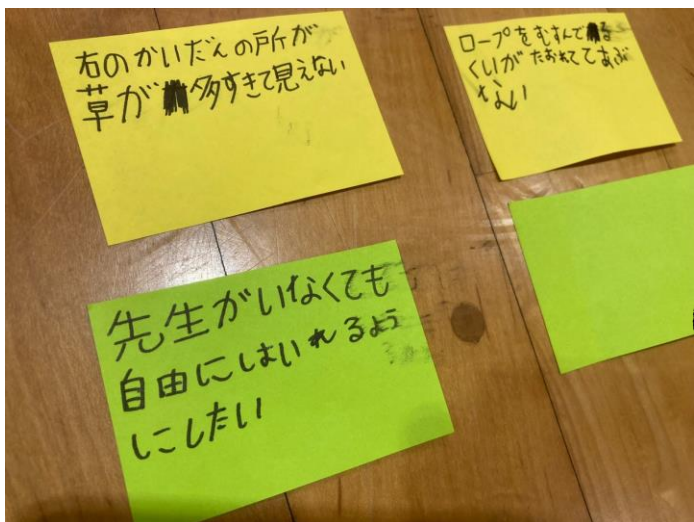 右のかいだんの所が
草が多すきて見えない
ロープをむすんでる
くいがたおれててあぶ
ない
先生がいなくても
自由にはいれるよう
にしたい